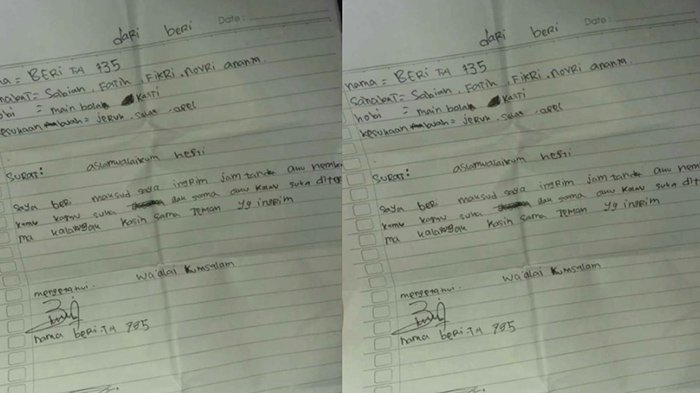 dari beri Date:
ma = BERi TA 735
sahabaT = Sabiah, Fatih, FiKRi, novRi
hobi = main bola KasTi
kesukaan buah = jeruk,
SURAT: asLamualaikum hesTi
saya beri maksud saya ingrim jam
kamu kamu suka dan sama aku kamu suka
ma kasih sama Teman yg ingrim
wa'alai kumsalam
mengetahui.
nama beri. TA 735
dari beri Date:
nama = BERi TA 735
sahabaT = Sabiah, Fatih, FiKRi, novRi
hobi = main bola KasTi
kesukaan buah = jeruk,
SURAT: asLamualaikum hesTi
saya beri maksud saya ingrim jam
kamu kamu suka dan sama aku kamu suka
ma kasih sama Teman yg ingrim
wa'alai kumsalam
mengetahui.
nama beri. TA 735